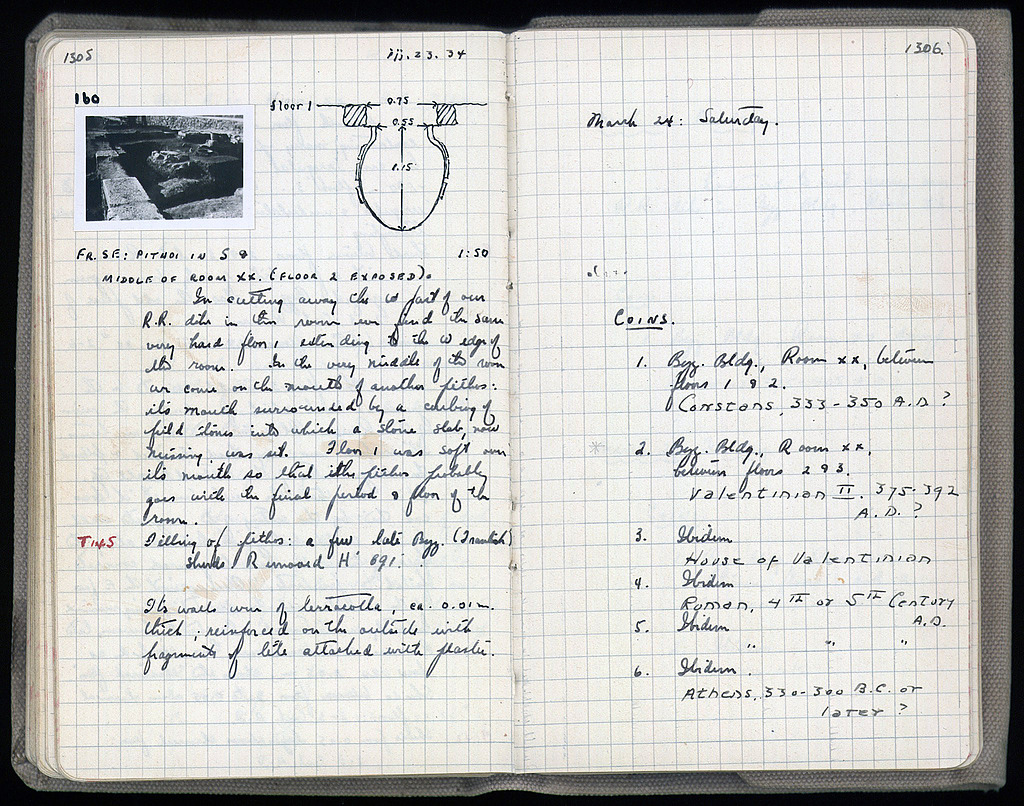 1305
iii. 23. 34
160
floor 1
0.75
0.55
1.15
FR. SE: PITHOI IN S 8
1:50
MIDDLE OF ROOM XX. (FLOOR 2 EXPOSED).
In cutting away the W part of our
R.R. dike in this room we find the same
very hard floor, extending to the W edge of
the room. In the very middle of the room
we come on the mouth of another pithos:
it's mouth surrounded by a curbing of
field stones into which a stone slab, now
missing was set. Floor 1 was soft over
it's mouth so that the pithos probably
goes with the final period & floor of the
room.
T145
Filling of pithos: a few late Byz. (Frankish)
sherds Removed H' 691.
It's walls were of terracotta, ca. 0.01 m.
thick; reinforced on the outside with
fragments of tile attached with plaster.
1306.
March 24: Saturday.
COINS.
1. Byz. Bldg., Room XX, between
floors 1 & 2.
Constans, 333-350 A.D ?
2. Byz. Bldg., Room XX,
between floors 2 & 3.
Valentinian II. 375-392
A.D. ?
3. Ibidem
House of Valentinian
4. Ibidem
Roman, 4TH or 5TH Century
A.D.
5. Ibidem
" " "
6. Ibidem.
Athens, 330-300 B.C. or
later ?